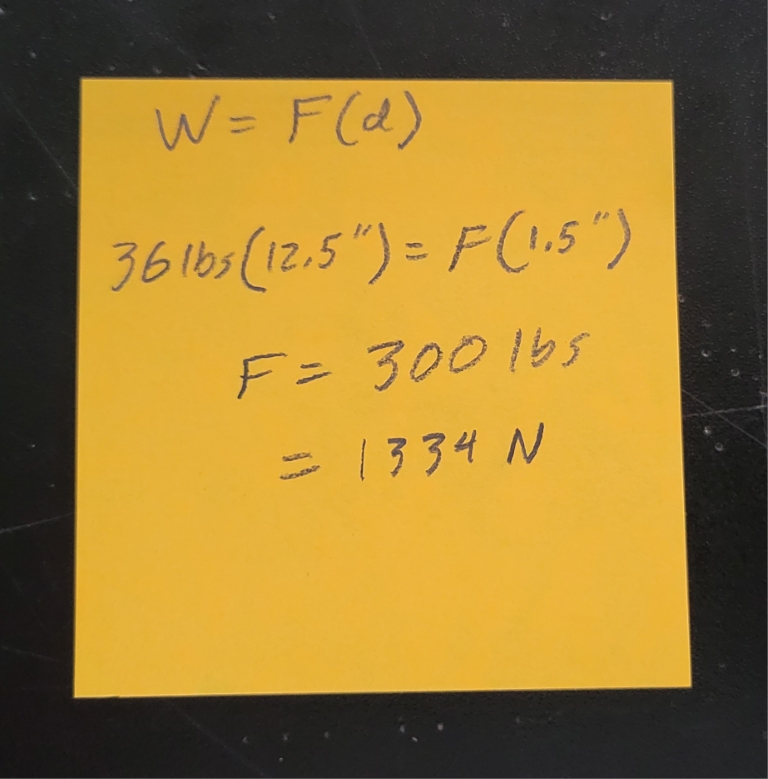 W = F(d)
36 lbs(12.5") = F(1.5")
F = 300 lbs
= 1334 N